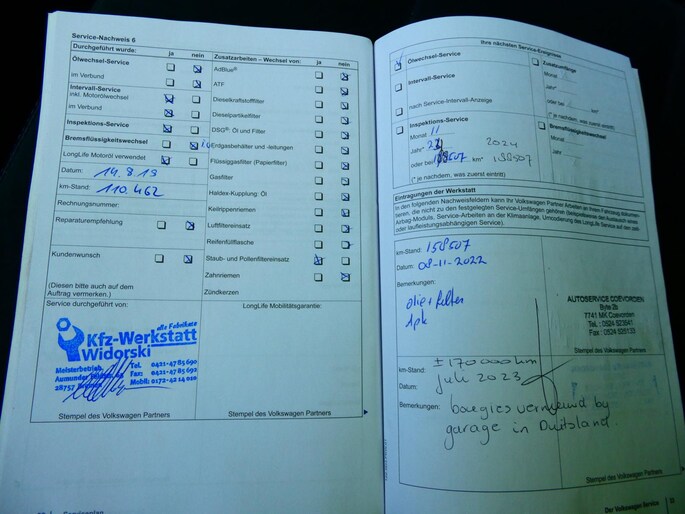 Service-Nachweis 6
Durchgeführt wurde: ja nein
Ölwechsel-Service
im Verbund
Intervall-Service
inkl. Motorölwechsel
im Verbund
Inspektions-Service
Bremsflüssigkeitswechsel
LongLife Motoröl verwendet
Datum: 14.8.19
km-Stand: 110.462
Rechnungsnummer:
Reparaturempfehlung
Kundenwunsch
(Diesen bitte auch auf dem
Auftrag vermerken.)
Service durchgeführt von:
alle Fabrikate
Kfz-Werkstatt
Widorski
Meisterbetrieb
Tel. 0421-4785690
Aumunder
Fax: 0421-4785692
28757
Mobil: 0172-4214010
Stempel des Volkswagen Partners
Zusatzarbeiten – Wechsel von: ja nein
AdBlue®
ATF
Dieselkraftstofffilter
Dieselpartikelfilter
DSG®: Öl und Filter
Erdgasbehälter und -leitungen
Flüssiggasfilter (Papierfilter)
Gasfilter
Haldex-Kupplung: Öl
Keilrippenriemen
Luftfiltereinsatz
Reifenfüllflasche
Staub- und Pollenfiltereinsatz
Zahnriemen
Zündkerzen
LongLife Mobilitätsgarantie:
Stempel des Volkswagen Partners
Serviceplan
Ihre nächsten Service-Ereignisse:
Ölwechsel-Service
Intervall-Service
nach Service-Intervall-Anzeige
Inspektions-Service
Monat 11
Jahr* 2024
oder bei 188507 km* 188507
(* je nachdem, was zuerst eintritt)
Zusatzumfänge
Monat
Jahr*
oder bei km*
(* je nachdem, was zuerst eintritt)
Bremsflüssigkeitswechsel
Monat
Jahr
Eintragungen der Werkstatt
In den folgenden Nachweisfeldern kann Ihr Volkswagen Partner Arbeiten an Ihrem Fahrzeug dokumen-
tieren, die nicht zu den festgelegten Service-Umfängen gehören (beispielsweise den Austausch eines
Airbag-Moduls, Service-Arbeiten an der Klimaanlage, Umcodierung des LongLife Service auf den zeit-
oder laufleistungsabhängigen Service).
km-Stand: 158507
Datum: 08-11-2022
Bemerkungen:
olie + filter
apk
AUTOSERVICE COEVORDEN
Byte 2b
7741 MK Coevorden
Tel.: 0524 523541
Fax: 0524 525133
Stempel des Volkswagen Partners
km-Stand: ± 170000km
Datum: juli 2023
Bemerkungen: bougies vernieuwd by
garage in Duitsland.
Stempel des Volkswagen Partners
Der Volkswagen Service